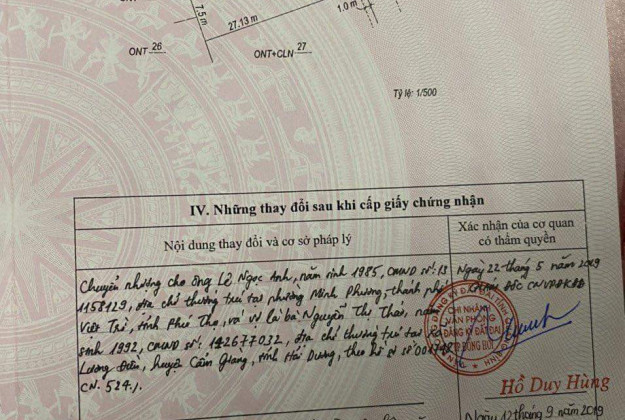 7,5m
27.13 m
1.0 m
ONT 26
ONT+CLN 27
Tỷ lệ: 1/500
IV. Những thay đổi sau khi cấp giấy chứng nhận
Nội dung thay đổi và cơ sở pháp lý
Xác nhận của cơ quan
có thẩm quyền
Chuyển nhượng cho ông Lê Ngọc Anh, năm sinh 1985, CMND số: 13
1158129, địa chỉ thường trú tại phường Minh Phương, thành phố
Việt Trì, tỉnh Phú Thọ, và vợ là bà Nguyễn Thị Thảo, năm
sinh 1992, CMND số: 142677032, địa chỉ thường trú tại xã
Lương Điền, huyện Cẩm Giàng, tỉnh Hải Dương, theo hồ sơ số
CN. 524./.
Ngày 22 tháng 5 năm 2019
GIÁM ĐỐC CNVPĐKĐĐ
CHI NHÁNH
VĂN PHÒNG
ĐĂNG KÝ ĐẤT ĐAI
Hồ Duy Hùng
Ngày 12 tháng 9 năm 2019